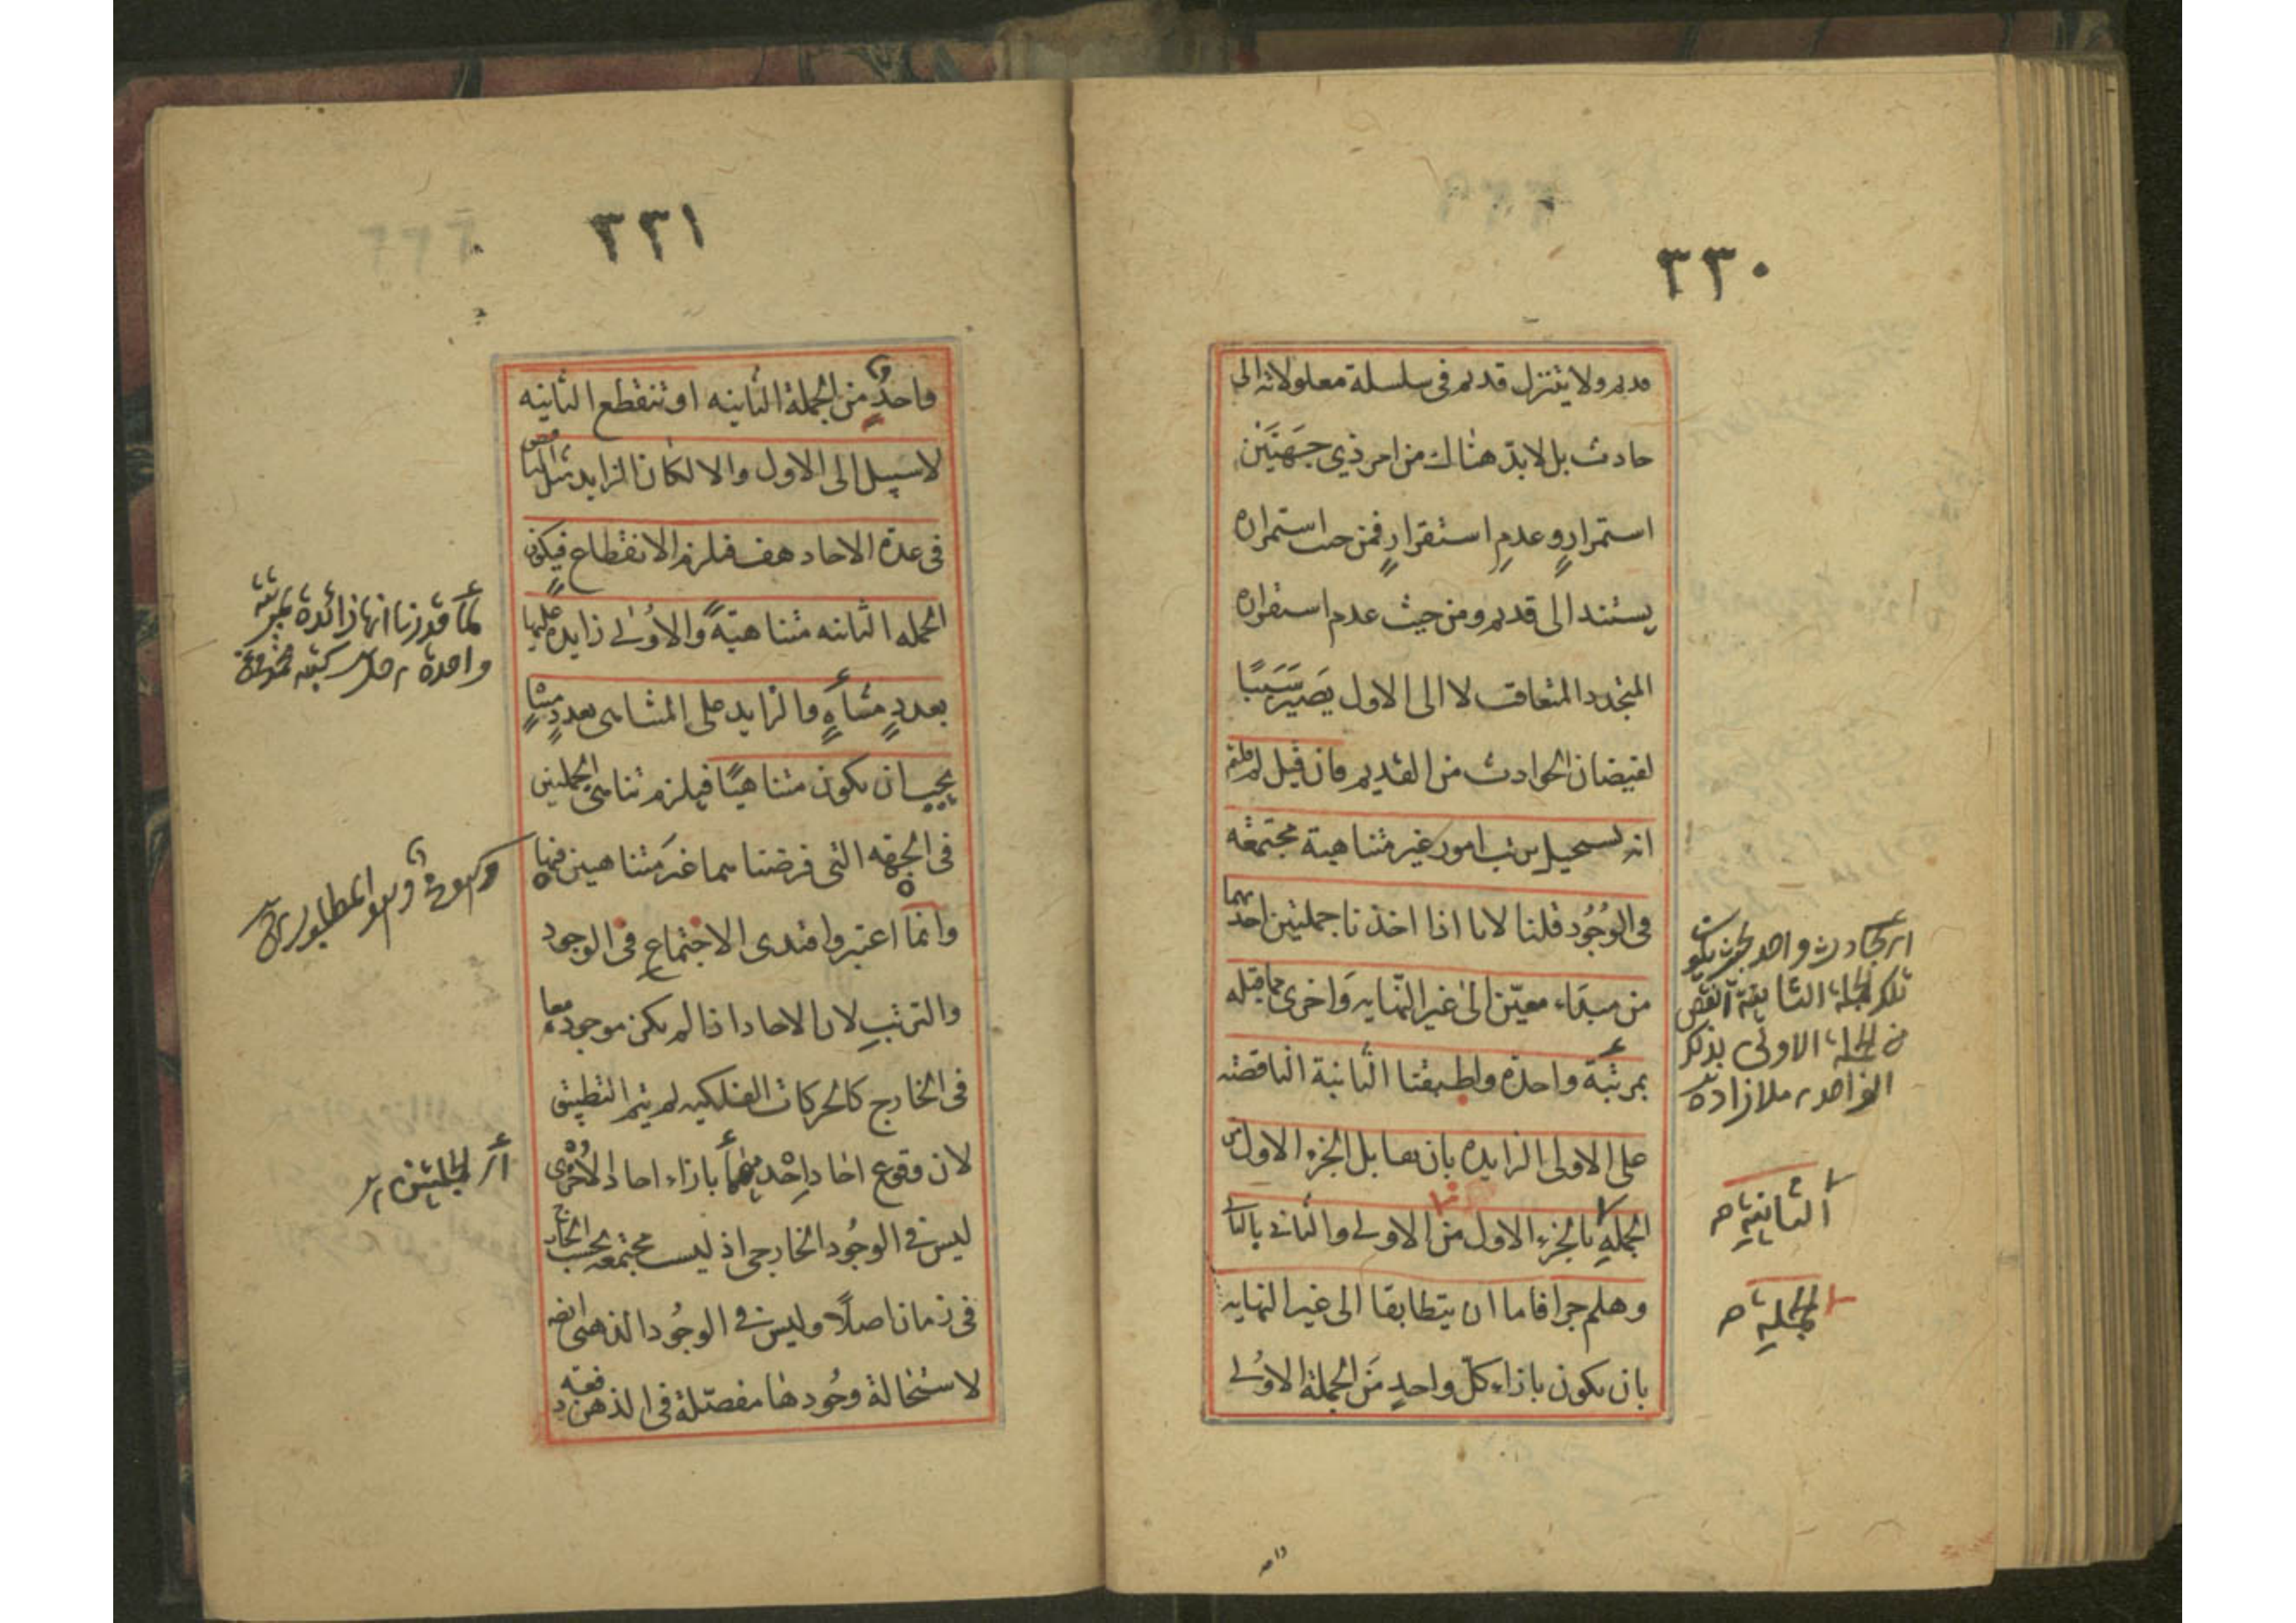 ٣٣٠
قديم ولا يتنزل قديم فى سلسلة معلولاته الى
حادث بل لابدّ هناك من امر ذي جهَتَيْن
استمرارٍ وعدمِ استقرارٍ فمن حيث استمراره
يستند الى قديم ومن حيث عدم استقراره
المتجدد المتعاقب لا الى الاول يَصيرُ سَبَبًا
لفيضان الحوادث من القديم فان قيل لم قلتم
انه يستحيل ترتب امور غير متناهية مجتمعه
فى الوُجُود قلنا لانا اذا اخذنا جملتين احدىهما
من مبداء معيّن الى غير النّهايه وَاخرى مما قبله
بمرتبَة واحدة واطبقنا الثانية الناقصة
على الاولى الزايده بان يقابل الجزء الاول من
الجملةِ بالجزءِ الاول من الاولى والثانى بالثانى
وهلم جرا فاما ان يتطابقا الى غير النهايه
بان يكون بازاء كلّ واحدٍ مَن الجملة الاوُلى
اى بحادث واحد بحيث يكون
تلك الجملة الثانية انقص
من الجملة الاولى بذلك
الواحد ملازاده
الثانيةِ صح
الجملةِ صح
٣٣١
واحدٌ من الجملة الثانيه او تنقطع الثانيه
لا سبيل الى الاول والا لكان الزايد مثل الناقص
فى عدة الاحاد هف فيلزم الانقطاع فيكون
الجمله الثانيه متناهيةً والاوُلى زايده عليها
بعددٍ متناهٍ والزايد على المتناهى بعددٍ متناهٍ
يجب ان يكون متناهيًا فيلزم تناهى الجملتين
فى الجهة التى فرضناهما غَير مَتناهيين فيها
وانما اعتبروا قيدى الاجتماع فى الوجود
والترتبِ لان الاحاد اذا لم يكن موجوده معا
فى الخارج كالحركات الفلكيه لم يتم التطبيق
لان وقوع احاد احْدىهما بازاء احاد الاُخْرى
ليس فى الوجُود الخارجى اذ ليست مجتمعه بحسب الخارج
فى زمان اصلًا وليس فى الوجُود الذهنى ايضا
لاستحالة وجُودها مفصّلة فى الذهن دفعة
لما قدرنا انها زائدة بمرتبة
واحدة
اى الجملتين